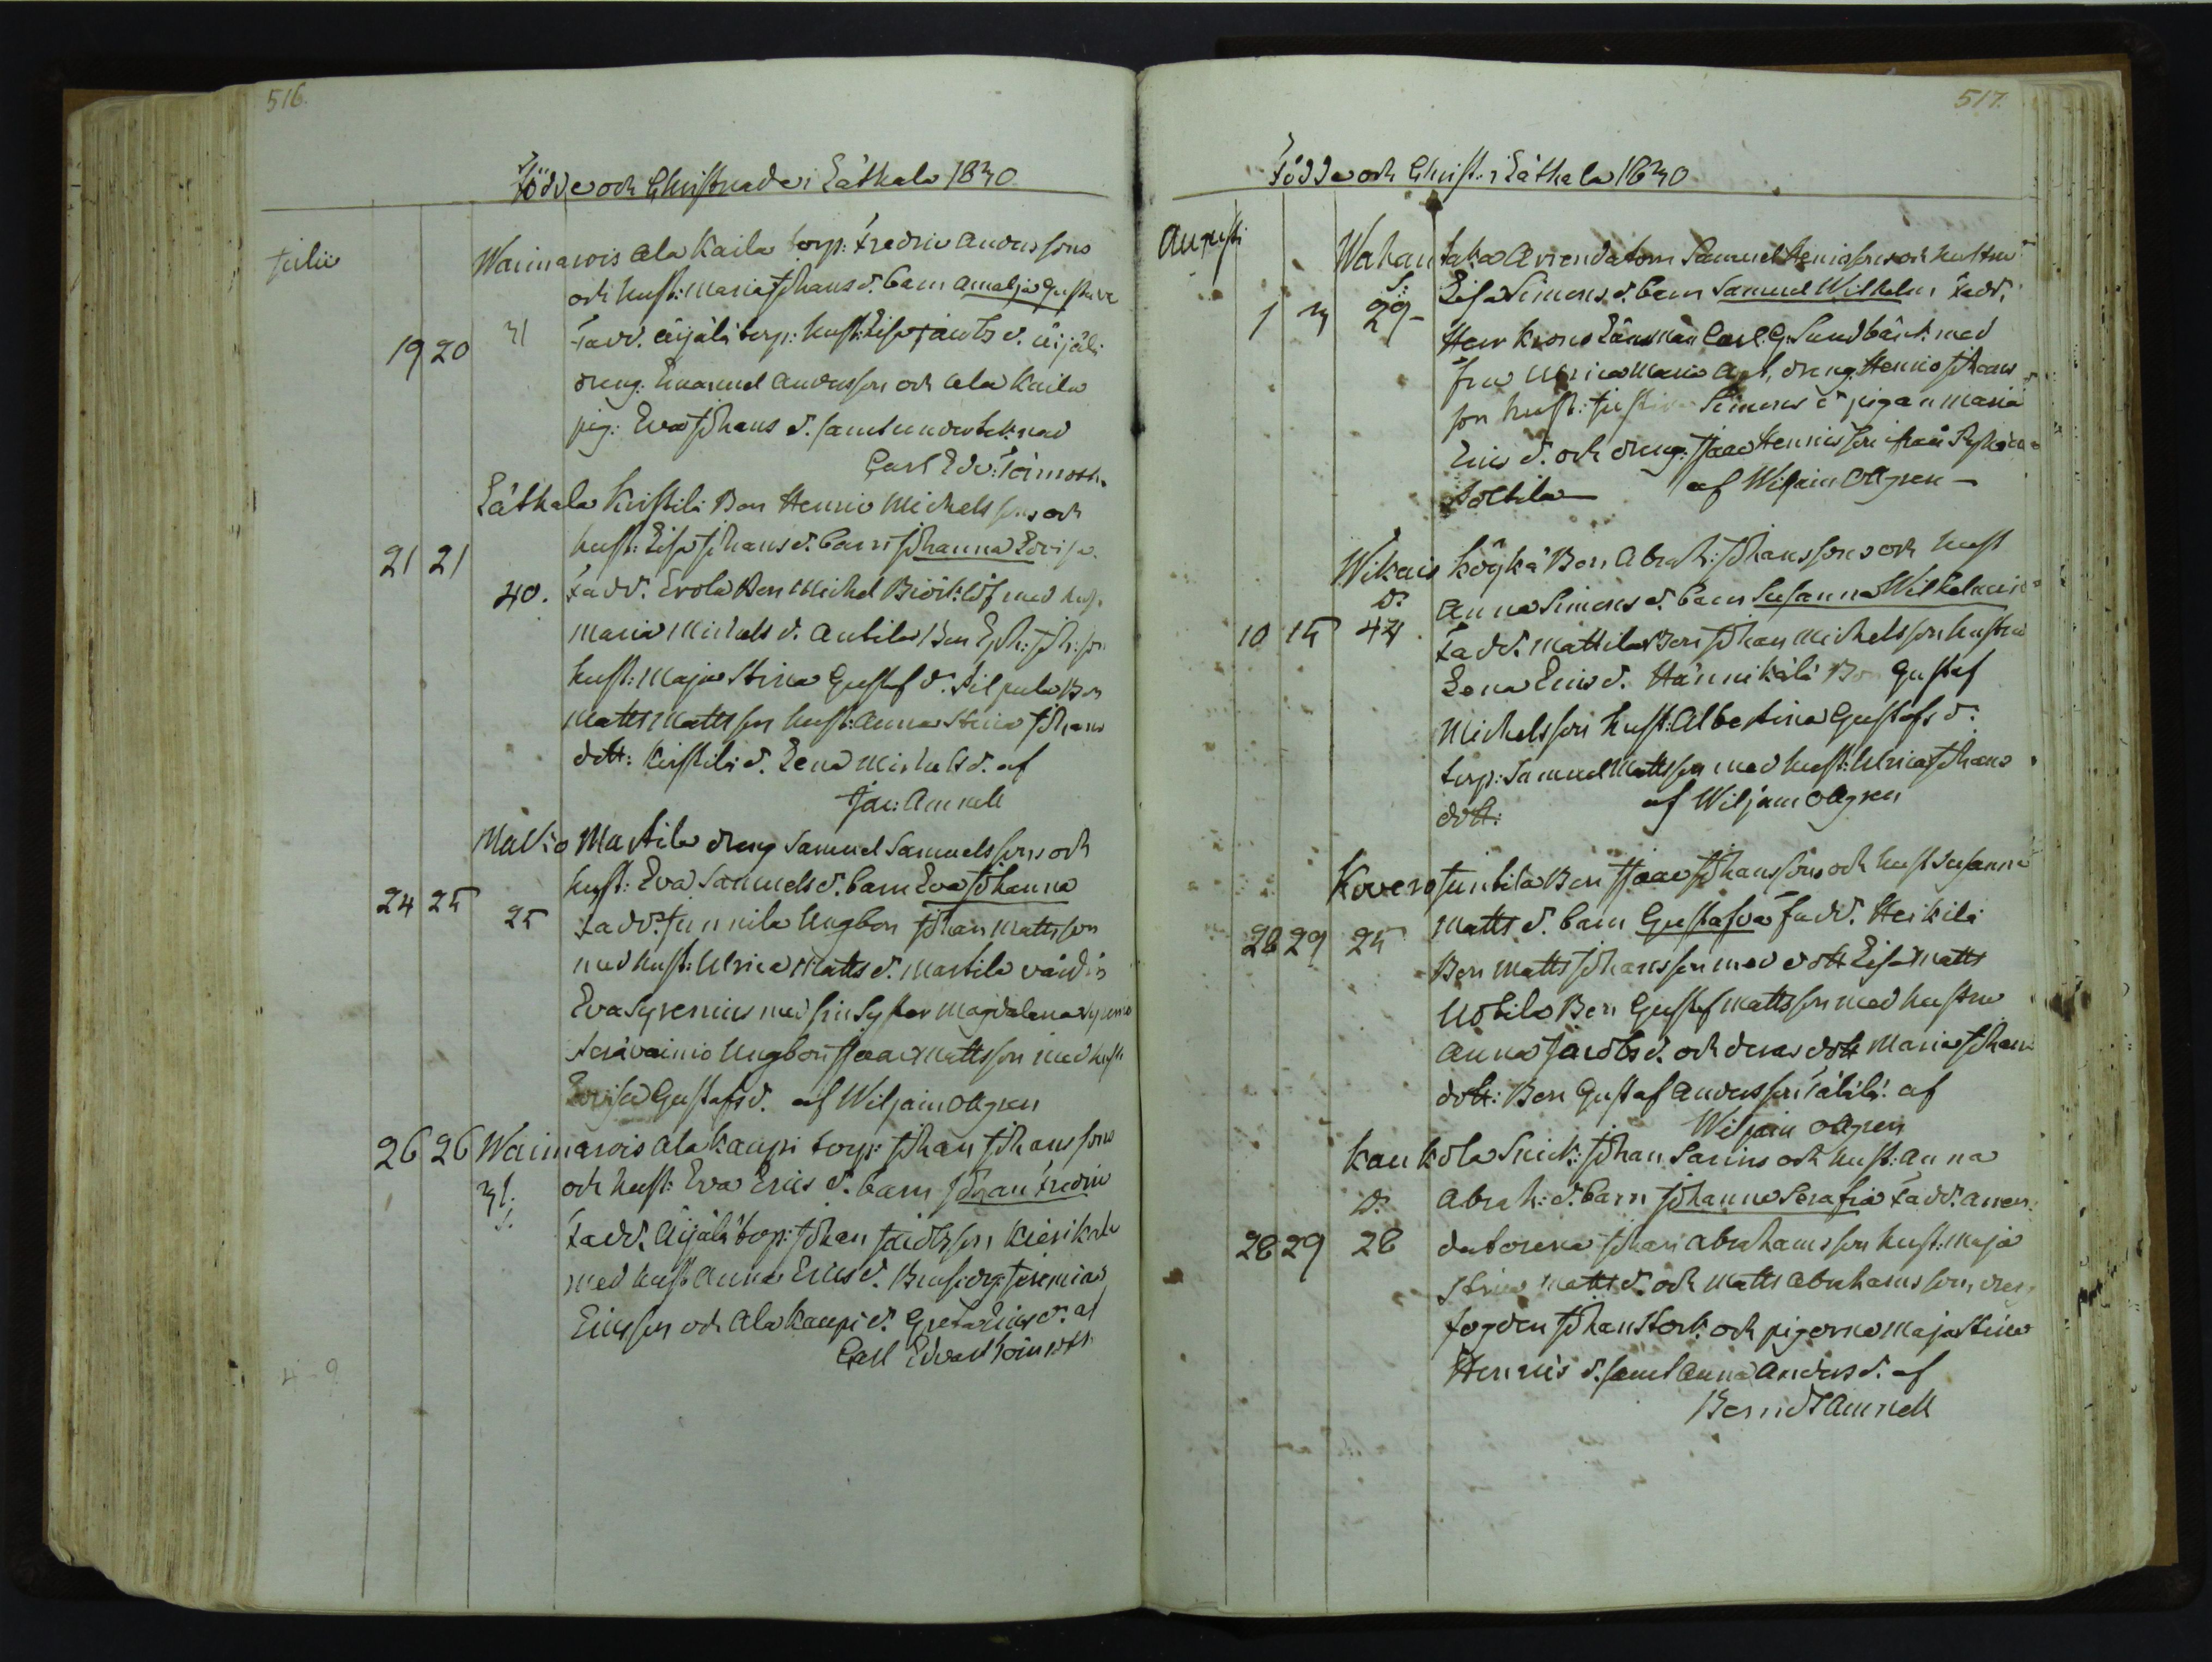 516.
Födde och Christnade i Låthala 1830
Julii
Wainarois Ala Kaila torp: Fredric Anderssons
och hust: Maria Johans d. barn Amalja Gustava
19 20 31 Fadd. Äijälä torp: hust: Lisa Jacobs d. Äijälä
dreng. Emanuel Andersson och Ala Kaila
pig: Eva Johans d. samt underteknad
Carl Edv: Törnroth.
Låthala Kirstilä Bon Henric Michelssons och
21 21 hust: Lisa Johans d. barn Johanna Lovisa.
40. Fadd. Erola Bon Michel Biörklöf med hust.
Maria Michels d. Antila Bon Eph: Joh:son
hust: Maja Stina Gustaf d. Silpula Bon
Matts Mattsson hust: Anna Stina Johans
dott: Kirstilä d. Lena Michels d. af
Jac: Amnell
Mallio Martila dreng Samuel Samuelssons och
24 25 hust: Eva Samuels d. barn Eva Johanna
25 Fadd. Junnila Ungbon Johan Mattsson
med hust: Ulrica Matts d. Martila värdin
Eva Syrenius med sin Syster Magdalena Syrenius
Ungbon Isaac Mattsson med hust
Lovisa Gustafs d. af Wiljam Ollgren
26 26 Wainarois Ala Kaupi torp: Johan Johanssons
31. och hust: Eva Erics d. barn Johan Fredric
S. Fadd. Äijälä torp: Johan Jacobsson Kierikala
med hust Anna Erics d. Jeremias
Ericsson och Ala Kaupi d. Greta Erics d. af
Carl Edvard Törnroth
4-9
517.
Födde och Christ: i Låthala 1830
Augusti
Wahantaka Arrendatorn Samuel Henricssons och hustru
S:
1 3 29- Lisa Simons d. barn Samuel Wilhelm Fadd.
Herr Krono Länsman Carl G. Sundbäck med
fru Ulrica Maria dreng. Henric Johans
son hust: Justina Simons d. pigan Maria
Erics d. och dreng: Isaac Henricsson från
af Wiljam Ollgren –
Wikais Köykä Bon Abrah: Johanssons och hust
D. Anna Simons d. barn Susanna Wilhelmina
10 15 44. Fadd. Mattila Bon Johan Michelsson hustru
Lena Erics d. Hännikälä Bon Gustaf
Michelsson hust: Albertina Gustafs d.
torp: Samuel Mattsson med hust: Ulrica Johans
dott: af Wiljam Ollgren
Kovero Juntila Bon Isaac Johanssons och hust Susanna
28 29 25 Matts d. barn Gustafva Fadd. Heikilä
Bon Matts Johansson med dott Lisa Matts
Uotila Bon Gustaf Mattsson med hustru
Anna Jacobs d. och deras dott Maria Johans
dott: Bon Gustaf Andersson Tätilä: af
Wiljam Ollgren
Kaukola Snick: Johan Sarins och hust: Anna
D. Abrah: d. barn Johanna Serafia Fadd. Arren:
28 29 28 datorerna Johan Abrahamsson hust: Maja
Stina Matts d. och Matts Abrahamsson,
fogden Johan Stork och pigorna Maja Stina
Henrics d. samt Anna Anders d. af
Berndt Amnell